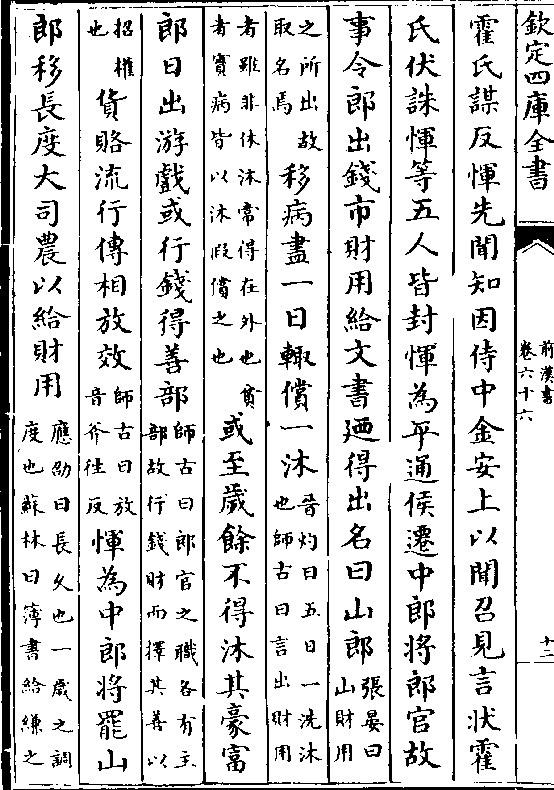 欽定四庫全書
前漢書
卷六十六
十二
霍氏謀反惲先聞知因侍中金安上以聞召見言狀霍
氏伏誅惲等五人皆封惲為平通侯遷中郎將郎官故
事令郎出錢市財用給文書廼得出名曰山郎張晏曰山財用
之所出故取名焉移病盡一日輙償一沐晉灼曰五日一洗沐也師古曰言出財用
者雖非休沐常得在外也貧者實病皆以沐假償之也或至歲餘不得沐其豪富
郎日出游戲或行錢得善部師古曰郎官之職各有主部故行錢財而擇其善以
招權也貨賂流行傳相放效師古曰放音斧往反惲為中郎將罷山
郎移長度大司農以給財用應劭曰長久也一歲之調度也蘇林曰簿書給縑之